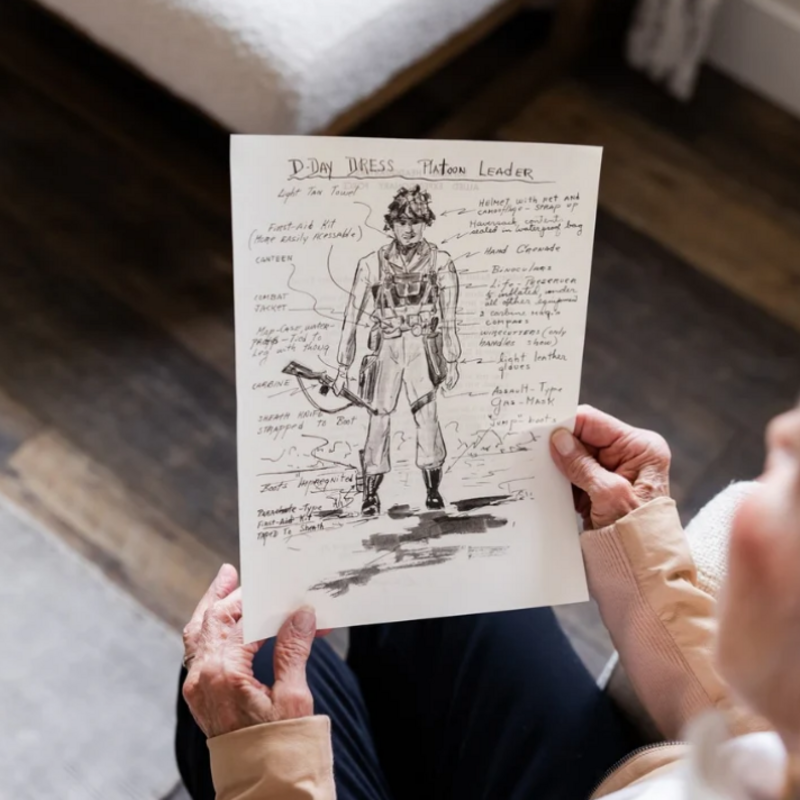 D-DAY DRESS PLATOON LEADER
Light Tan Towel
First-Aid Kit
(More Easily Acessable)
CANTEEN
COMBAT
JACKET
Map-Case, water-
proof - Tied to
Leg with thong
CARBINE
SHEATH KNIFE
strapped to Boot
Boots "Impregnated"
Parachute-Type
First-Aid Kit
Taped To Sheath
Helmet with net and
camouflage - strap up
Haversack content
sealed in waterproof bag
Hand Grenade
Binoculars
Life-Preserver
inflated, under
all other equipment
2 carbine mag's
compass
wirecutters (only
handles show)
Light leather
gloves
Assault-Type
Gas-Mask
"Jump" boots